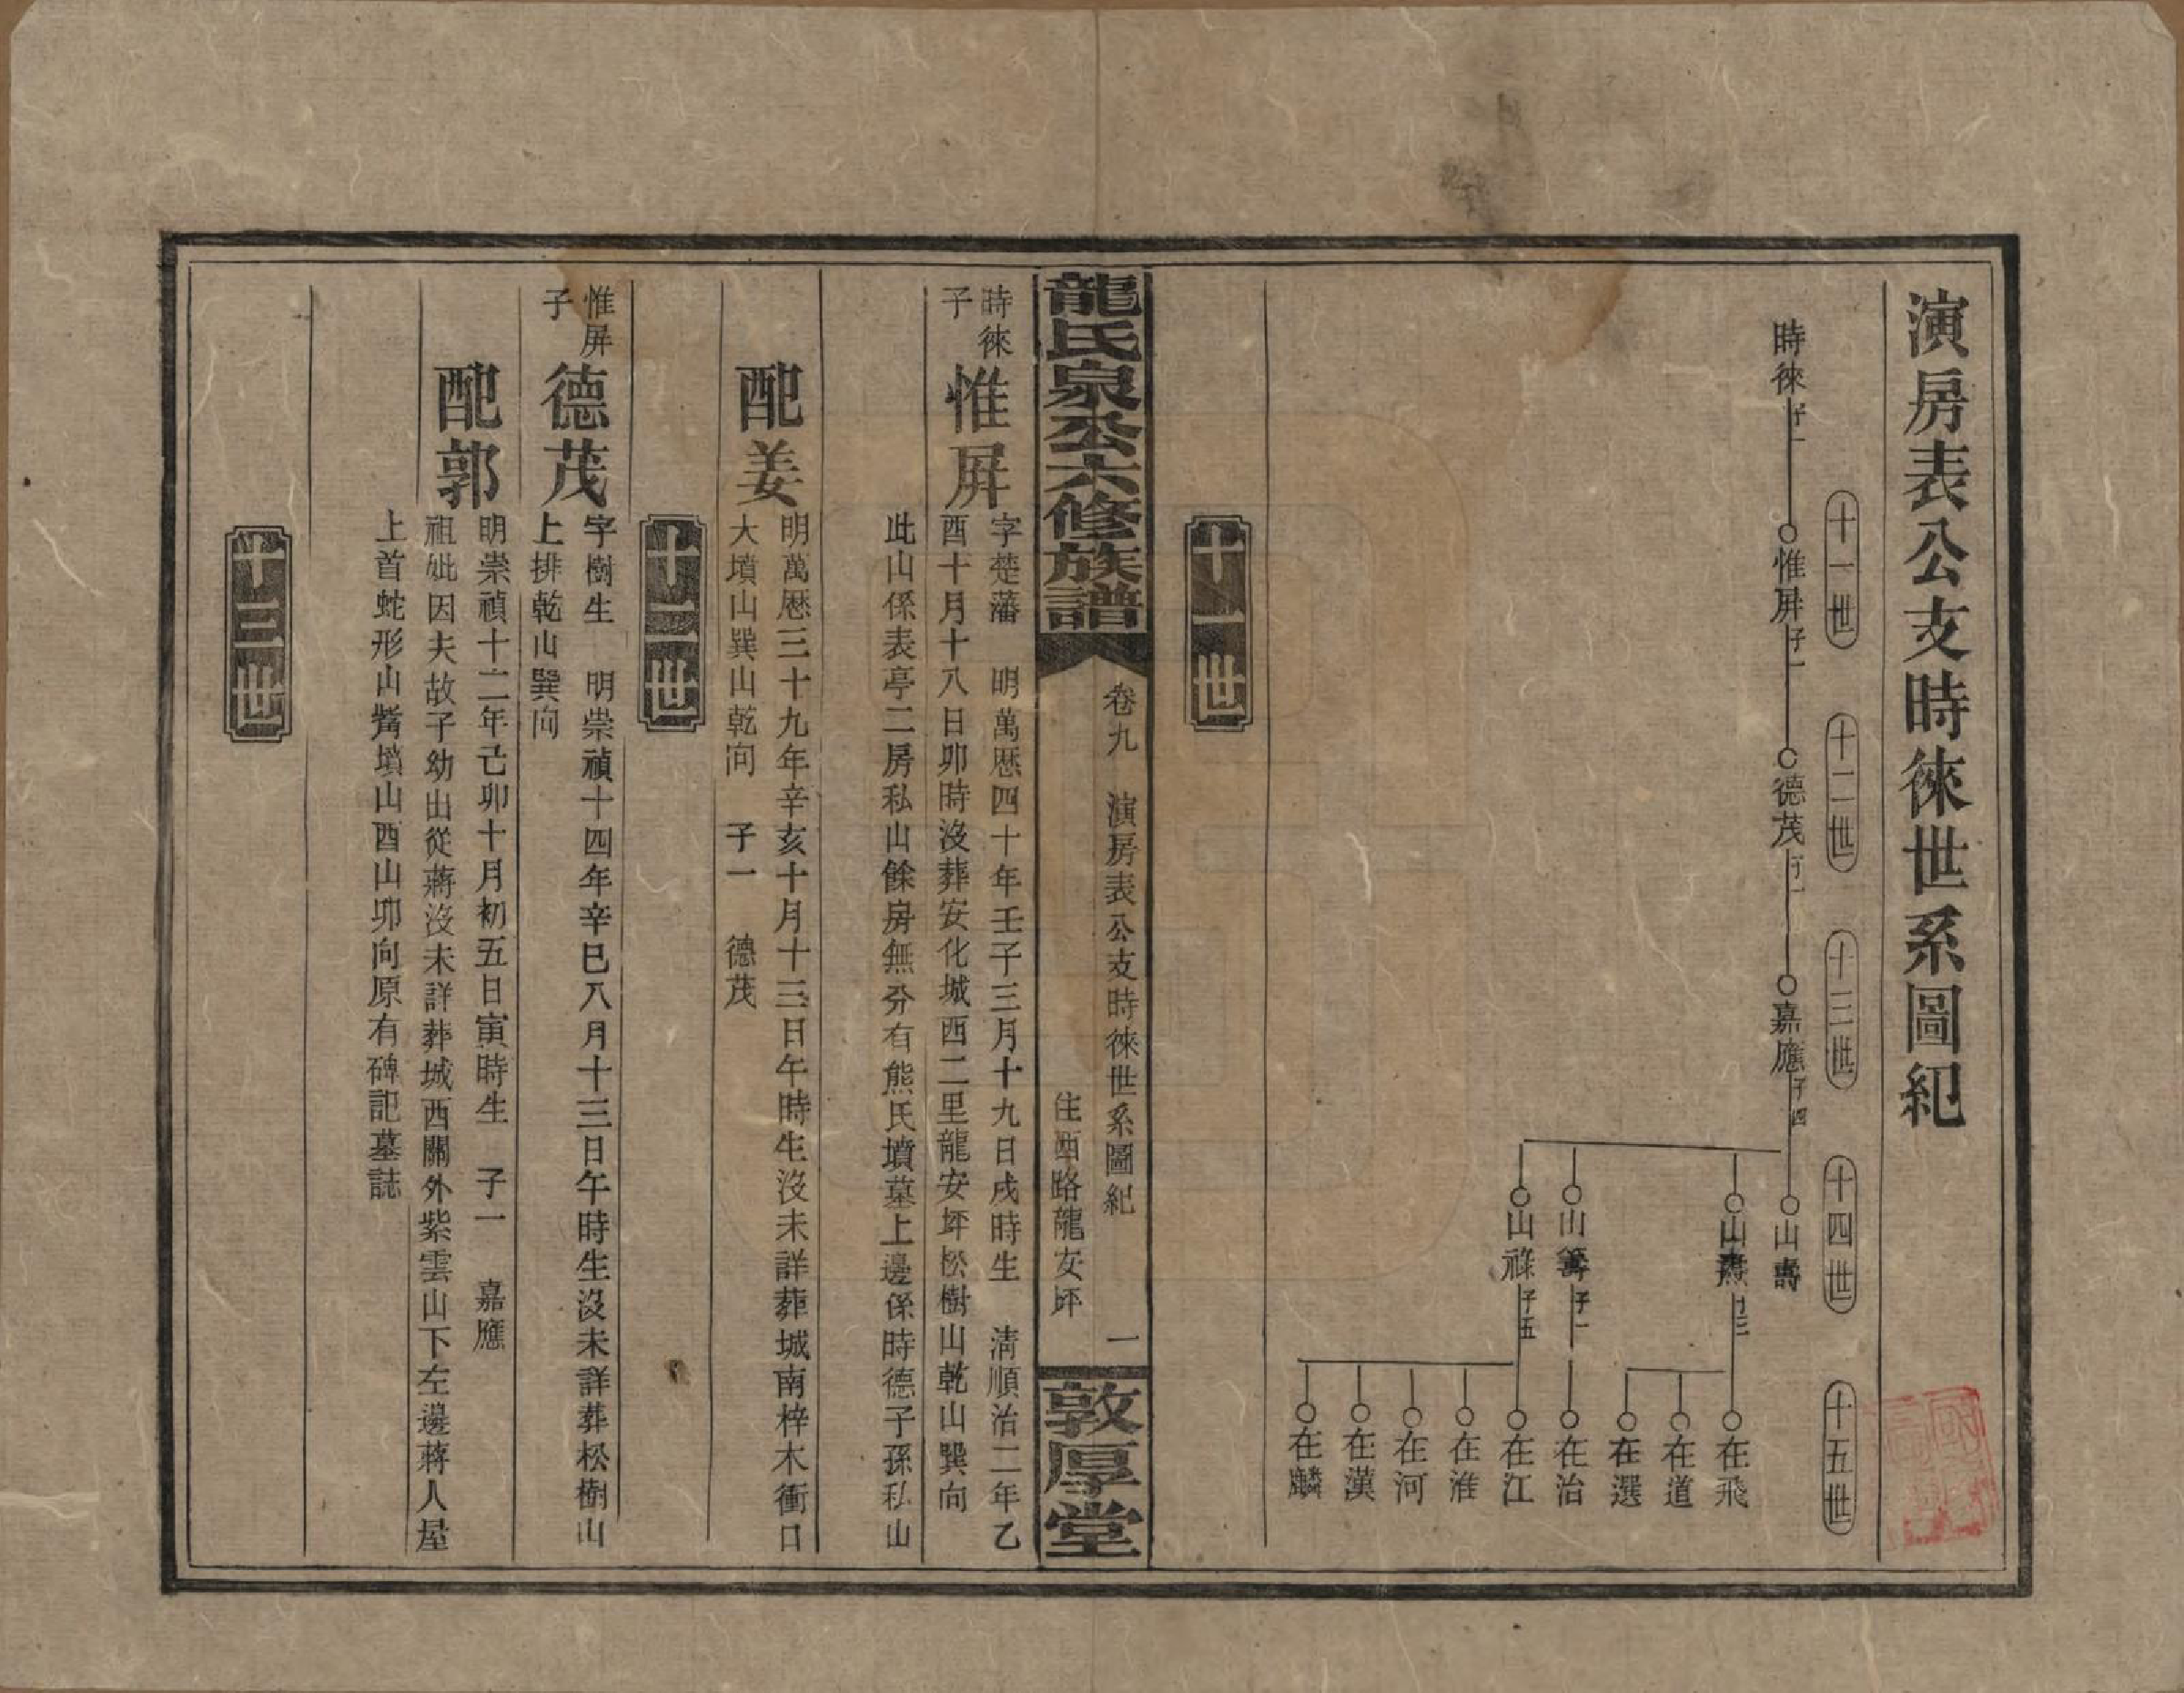 演房表公支時徠世系圖紀
十一世
十二世
十三世
十四世
十五世
時徠 子一
惟屏 子一
德茂 子一
嘉應 子四
山壽
山燾 子三
山籌 子一
山祿 子五
在飛
在道
在選
在治
在江
在淮
在河
在漢
在麟
十一世
龍氏泉公六修族譜
卷九 演房表公支時徠世系圖紀 一
住西路龍安坪
敦厚堂
時徠子
惟屏
字楚藩 明萬歷四十年壬子三月十九日戌時生 淸順治二年乙
酉十月十八日卯時沒葬安化城西二里龍安坪松樹山乾山巽向
此山係表亭二房私山餘房無分有熊氏墳墓上邊係時德子孫私山
配姜
明萬歷三十九年辛亥十月十三日午時生沒未詳葬城南梓木衝口
大墳山巽山乾向 子一 德茂
十二世
惟屏子
德茂
字樹生 明崇禎十四年辛巳八月十三日午時生沒未詳葬松樹山
上排乾山巽向
配郭
明崇禎十二年己卯十月初五日寅時生 子一 嘉應
祖妣因夫故子幼出從蔣沒未詳葬城西關外紫雲山下左邊蔣人屋
上首蛇形山觜墳山酉山卯向原有碑記墓誌
十三世